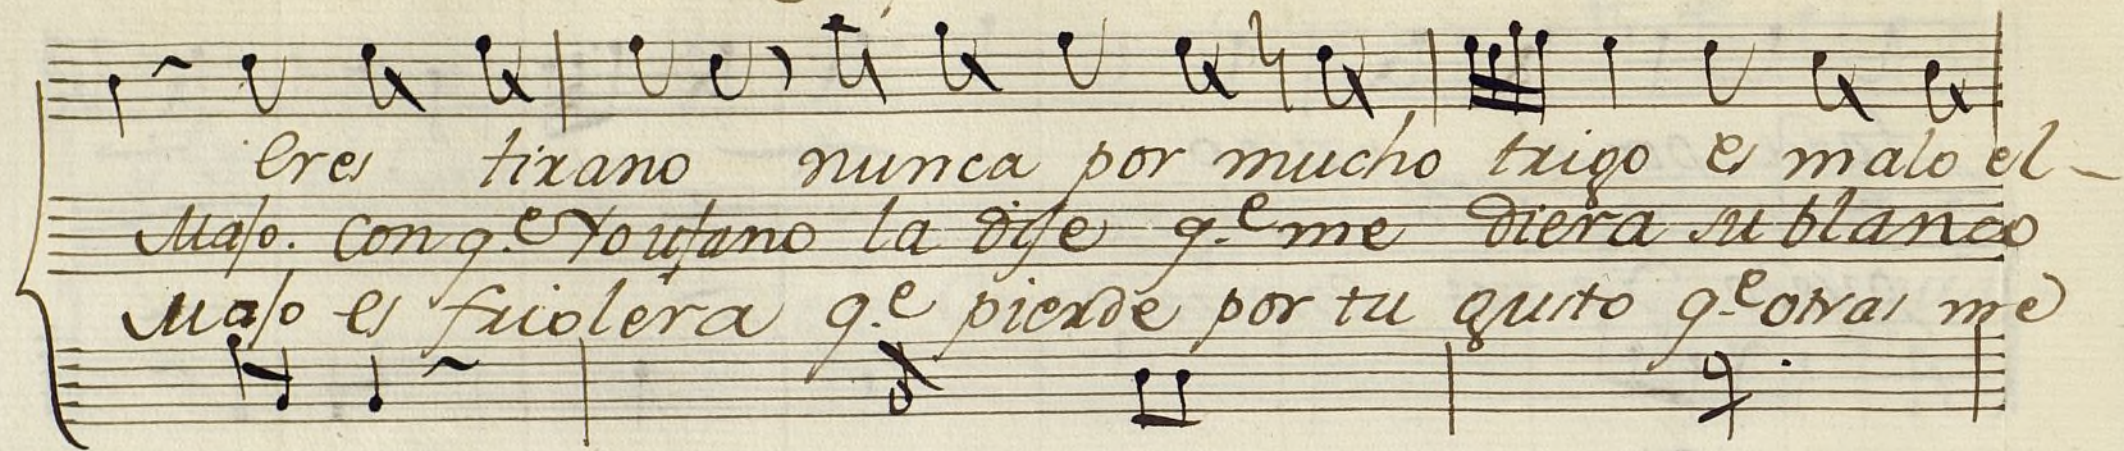 eres tirano nunca por mucho trigo es malo el
Majo. Con q.e Yo ufano la dije q.e me diera su blanco
Majo es friolera q.e pierde por tu gusto q.e otras me